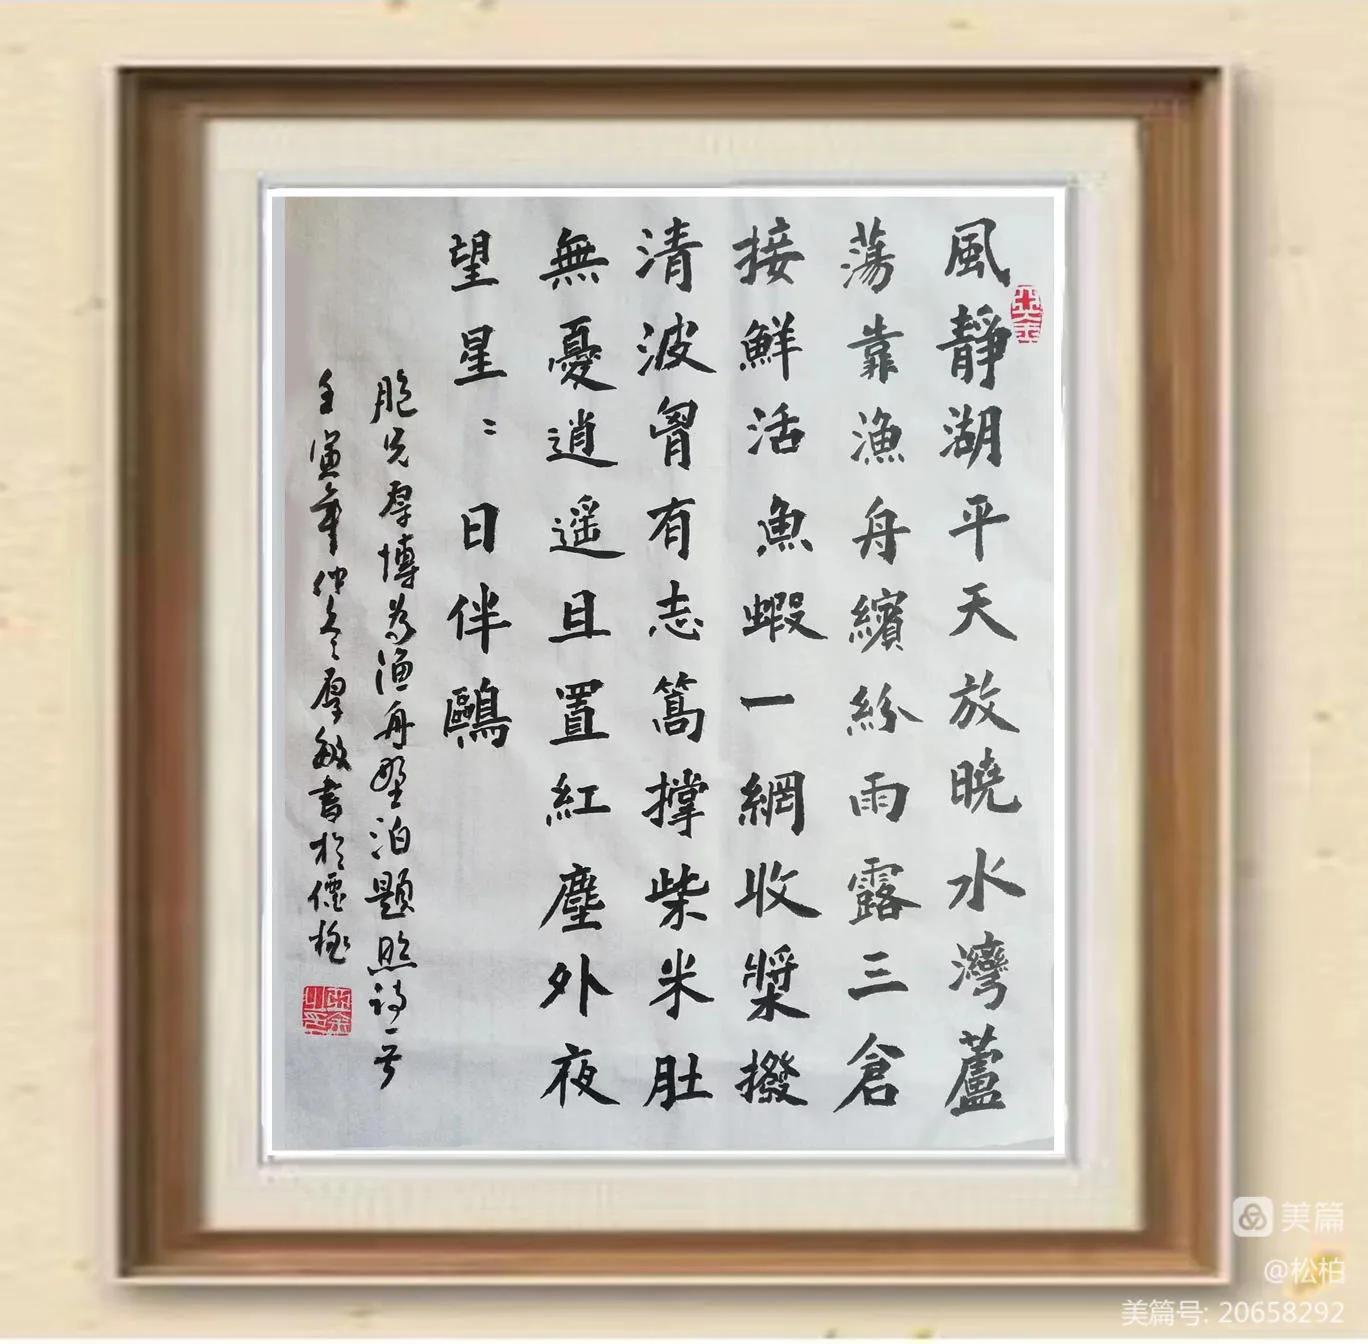 風靜湖平天放曉水灣蘆
蕩靠漁舟繽紛雨露三倉
接鮮活魚蝦一網收槳撥
清波胷有志篙撐柴米肚
無憂逍遥且置紅塵外夜
望星：日伴鷗
胞兄群博為漁舟野泊題照詩一首
壬寅年仲冬群敏書於
美篇
@松柏
美篇号: 20658292